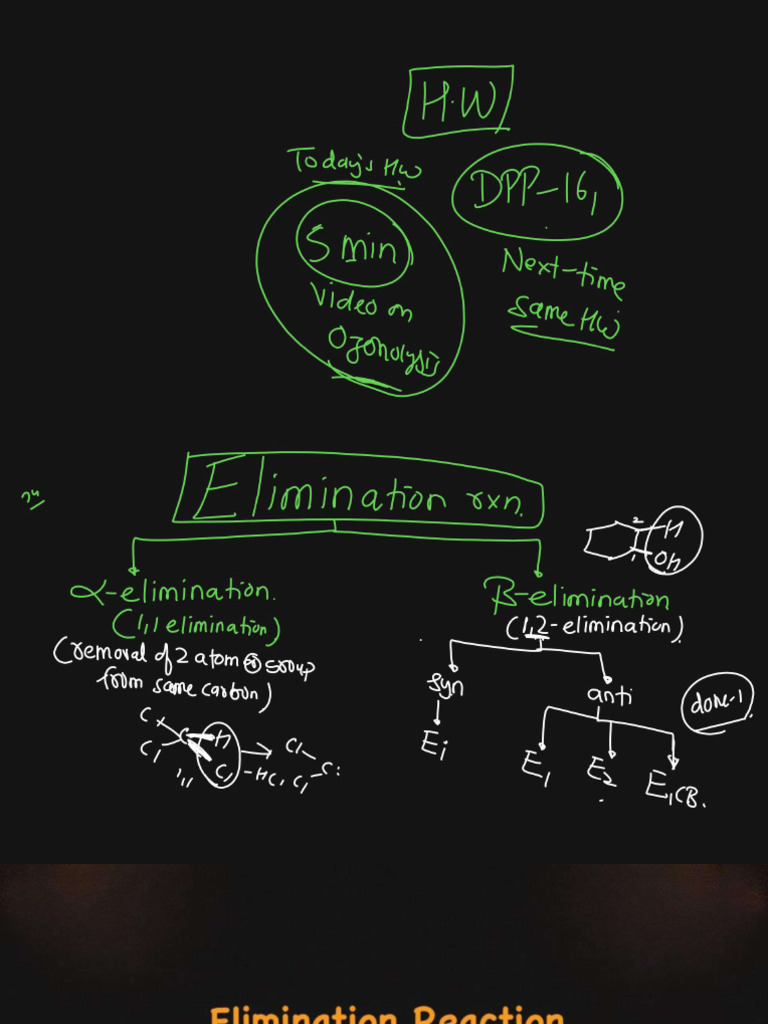 H.W
Today's HW
DPP-16,
5 min
Video on
Ozonolysis
Next-time
same HW
Elimination rxn.
2
H
1
OH
α-elimination.
(1,1 elimination)
(removal of 2 atom or group
from same carbon)
β-elimination
(1,2-elimination)
syn
anti
done-1
Ei
E1
E2
E1CB.
Cl
Cl
C
H
Cl
1,1
-HCl
Cl
Cl
C:
Elimination Reaction